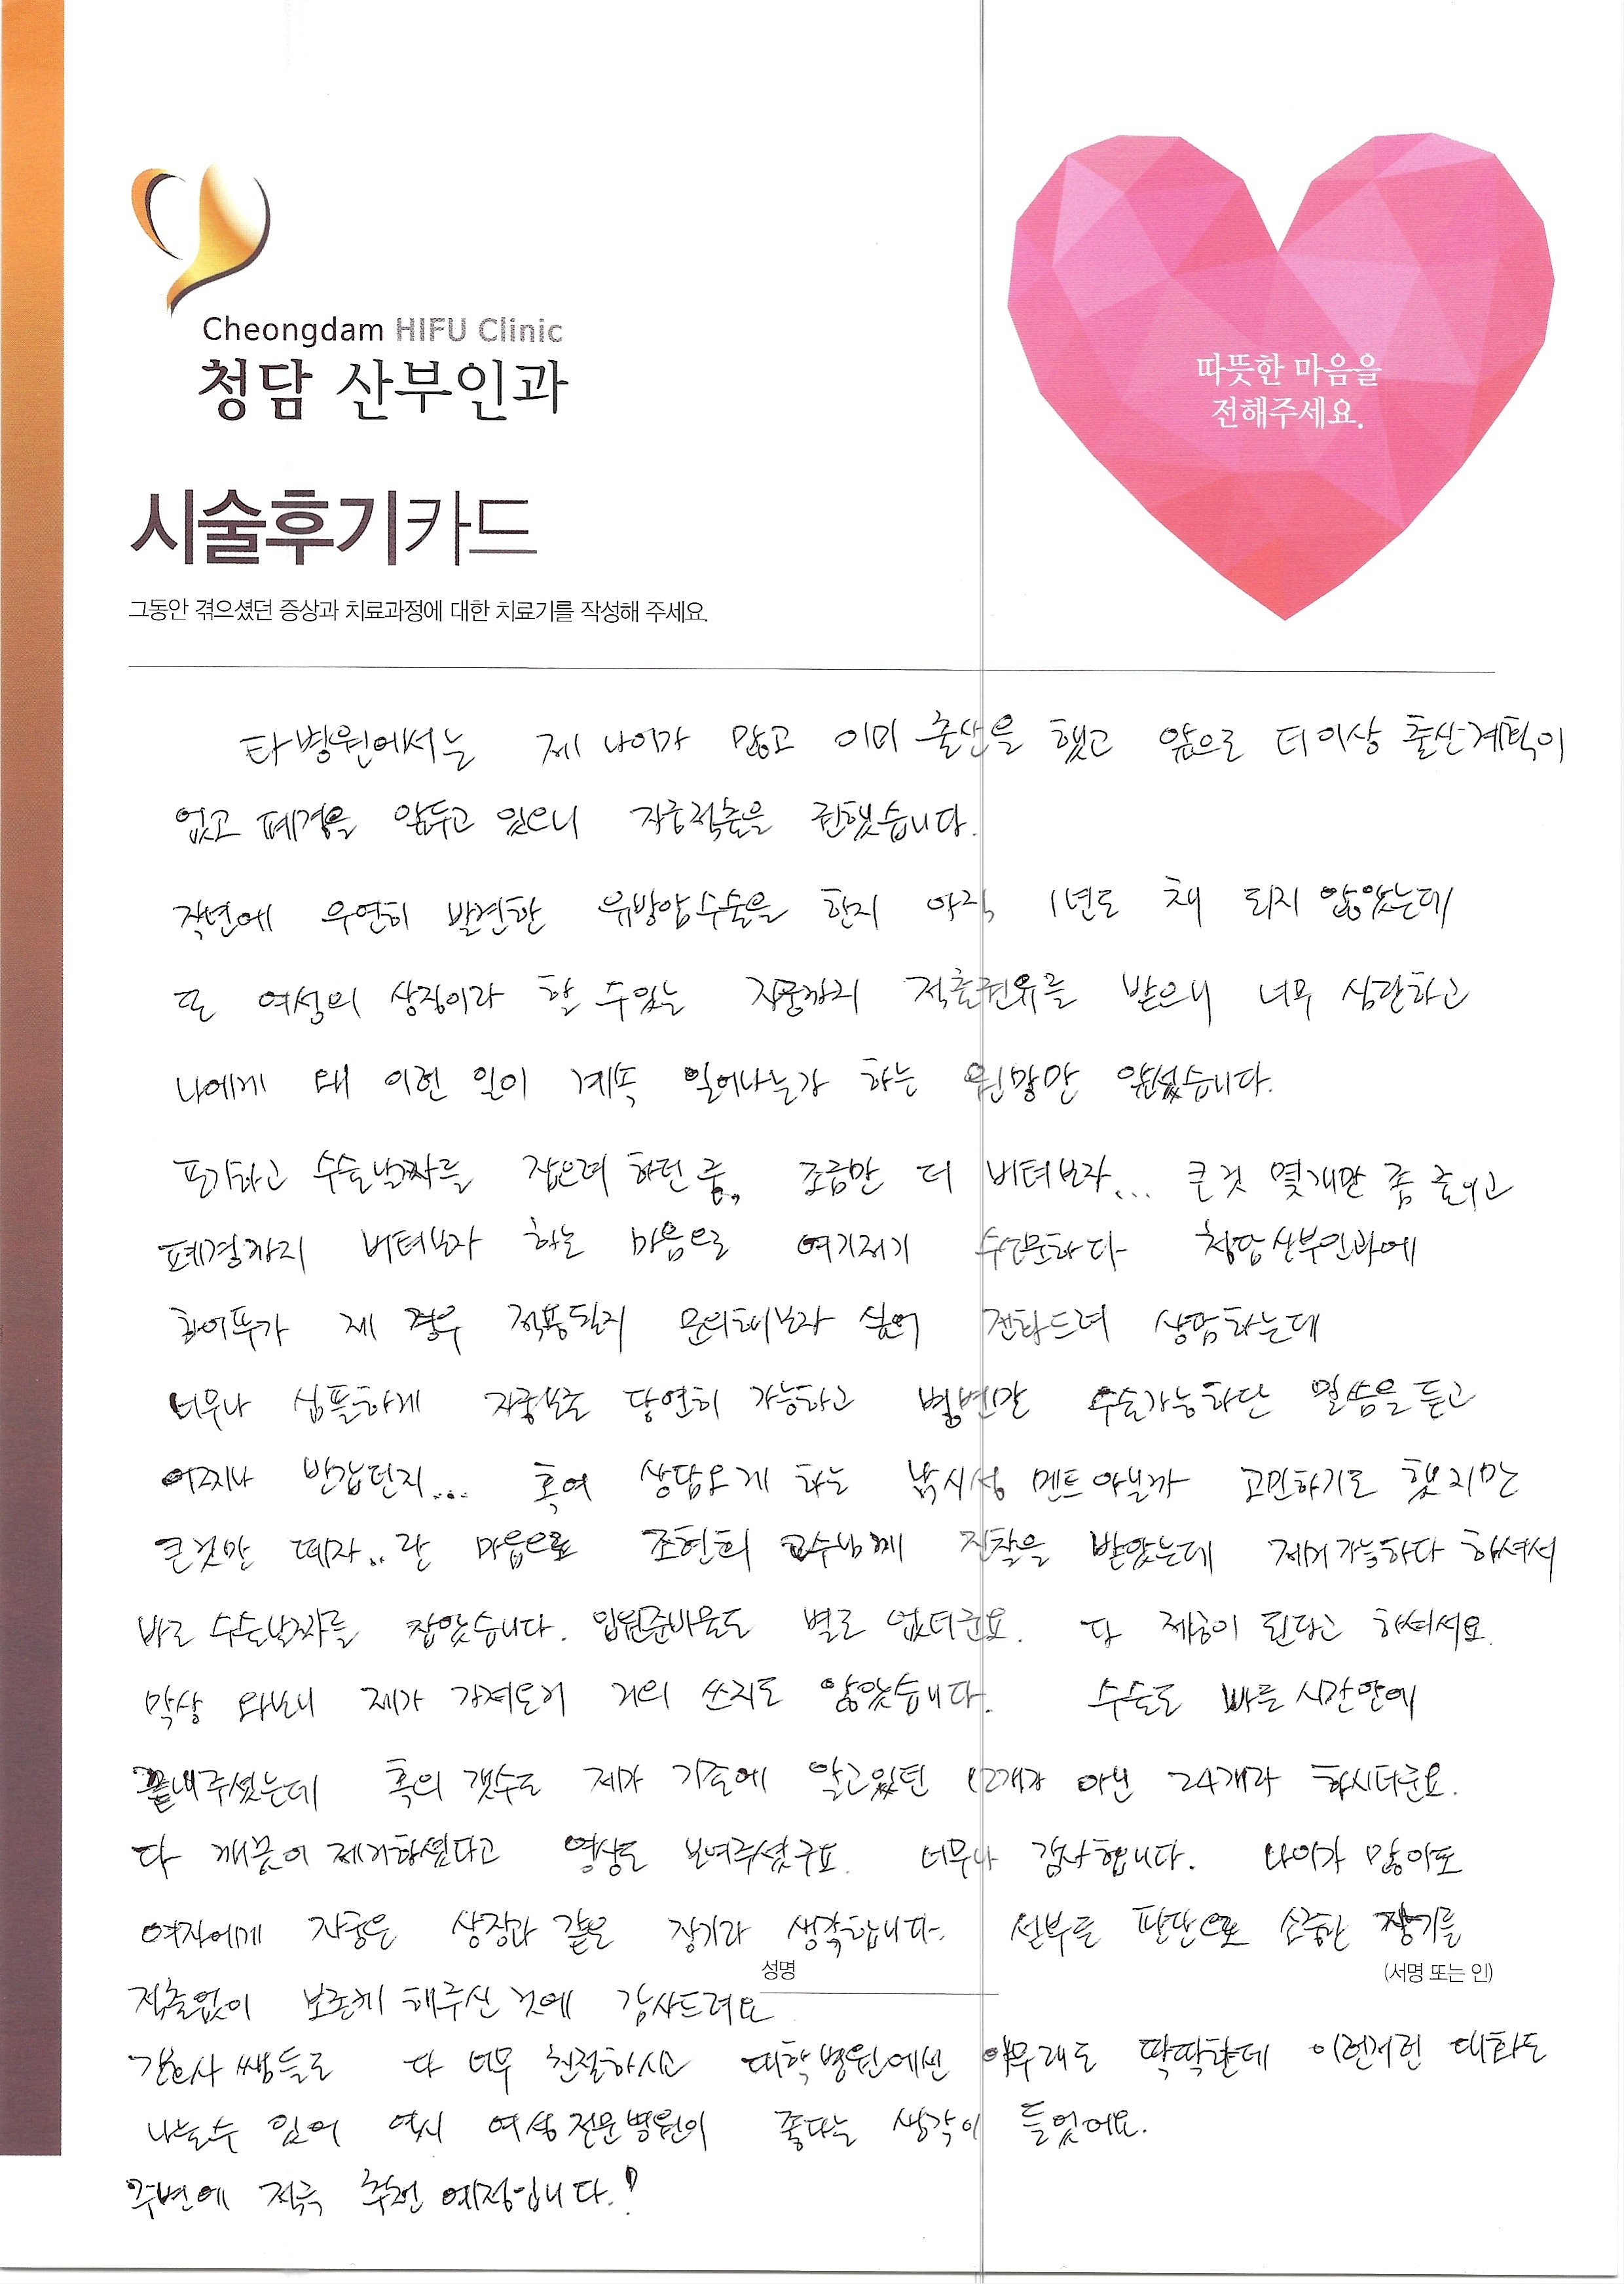 Cheongdam HIFU Clinic
청담 산부인과
따뜻한 마음을
전해주세요.
시술후기카드
그동안 겪으셨던 증상과 치료과정에 대한 치료기를 작성해 주세요.
타병원에서는 제 나이가 많고 이미 출산을 했고 앞으로 더이상 출산계획이
없고 폐경을 앞두고 있으니 자궁적출을 권했습니다.
작년에 우연히 발견한 유방암수술을 한지 아직 1년도 채 되지 않았는데
또 여성의 상징이라 할 수있는 자궁까지 적출권유를 받으니 너무 심란하고
나에게 왜 이런 일이 계속 일어나는가 하는 원망만 앞섰습니다.
포기하고 수술날짜를 잡으려 하던 중, 조금만 더 버텨보자... 큰것 몇개만 좀 줄이고
폐경까지 버텨보자 하는 마음으로 여기저기 수소문하다 청담산부인과에
하이푸가 제 경우 적용될지 문의해보자 싶어 전화드려 상담하는데
너무나 심플하게 자궁보존 당연히 가능하고 웬만 수술가능하단 말씀을 듣고
어찌나 반갑던지... 혹여 상담오게 하는 낚시성 멘트아닐까 고민하기도 했지만
큰것만 떼자..란 마음으로 조현희 교수님께 진찰을 받았는데 제거가능하다 하셔서
바로 수술날짜를 잡았습니다. 입원준비물도 별로 없더군요. 다 제공이 된다고 하셔서요.
막상 와보니 제가 가져온거 거의 쓰지도 않았습니다. 수술도 빠른 시간안에
끝내주셨는데 혹의 갯수도 제가 기존에 알고있던 12개가 아닌 24개라 하시더군요.
다 깨끗이 제거하셨다고 영상도 보여주셨구요. 너무나 감사합니다. 나이가 많아도
여자에게 자궁은 상징과 같은 장기라 생각합니다. 섣부른 판단으로 소중한 장기를
성명
(서명 또는 인)
적출없이 보존케 해주신 것에 감사드려요
간호사 쌤들도 다 너무 친절하시고 대학병원에선 아무래도 딱딱한데 이런저런 대화도
나눌수 있어 역시 여성전문병원이 좋다는 생각이 들었어요.
주변에 적극 추천 예정입니다.!